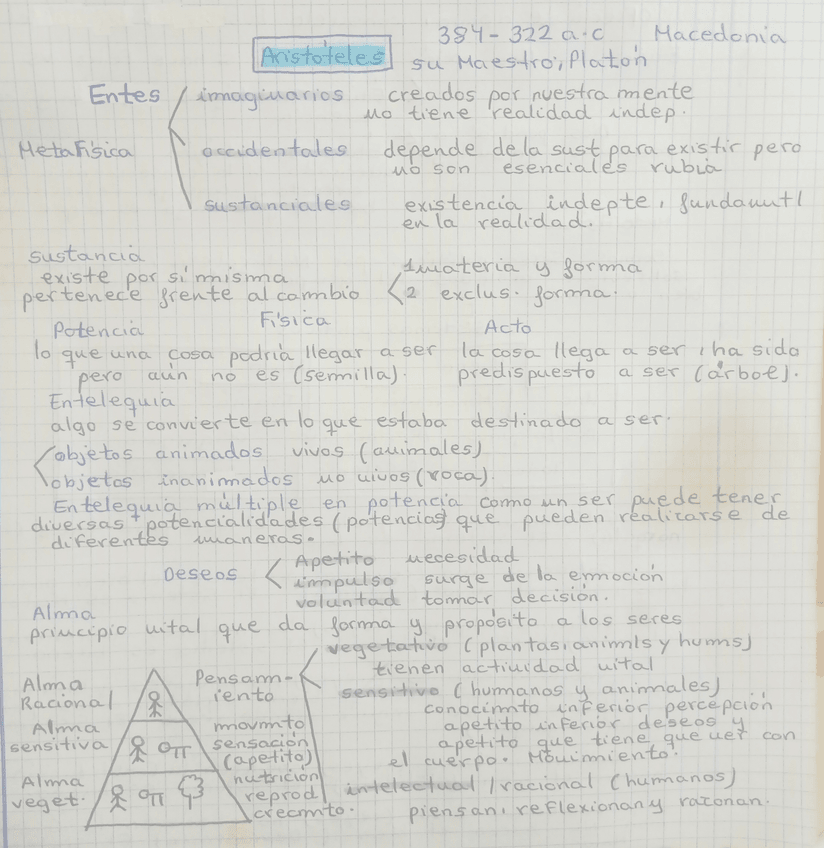 384 - 322 a.c Macedonia
Aristóteles su Maestro, Platón
Entes imaginarios creados por nuestra mente
no tiene realidad indep.
Metafísica occidentales depende de la sust para existir pero
no son esenciales rubia
sustanciales existencia indepte, fundamntl
en la realidad.
sustancia
existe por si mnisma
pertenece frente al cambio
1 materia y forma
2 exclus. forma.
Física
Potencia
lo que una cosa podría llegar a ser
pero aún no es (semilla).
Acto
la cosa llega a ser, ha sido
predispuesto a ser (árbol).
Entelequia
algo se convierte en lo que estaba destinado a ser.
objetos animados vivos (animales)
objetos inanimados no vivos (roca).
Entelequia múltiple en potencia como un ser puede tener
diversas potencialidades (potencias) que pueden realizarse de
diferentes maneras.
Deseos
Apetito necesidad
impulso surge de la emoción
voluntad tomar decisión.
Alma
principio vital que da forma y propósito a los seres
Alma
Racional
Alma
sensitiva
Alma
veget.
Pensam-
iento
movmto
sensación
(apetito)
nutrición
reprod
crecmto.
vegetativo (plantas, animls y humns)
tienen actividad vital
sensitivo (humanos y animales)
conocimto inferior percepción
apetito inferior deseos y
apetito que tiene que ver con
el cuerpo. Movimiento.
intelectual / racional (humanos)
piensan, reflexionan y razonan.